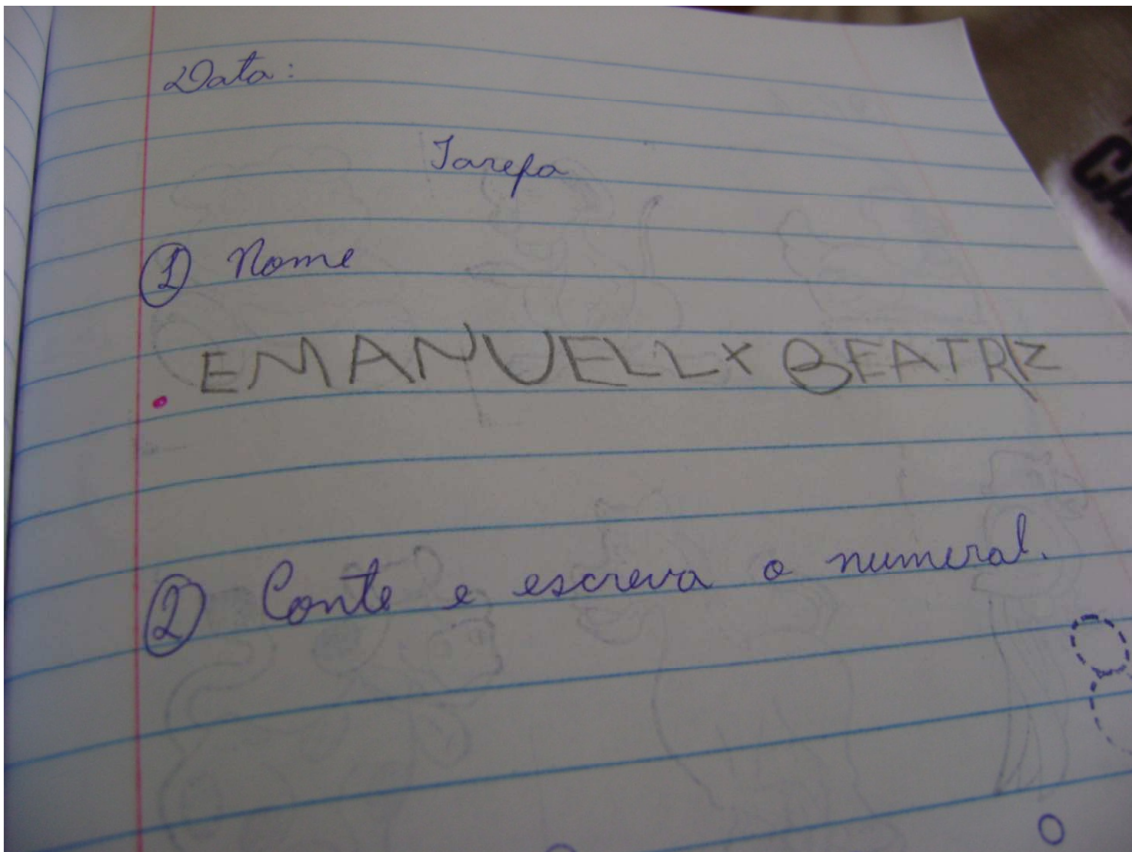 Data:
Tarefa
① Nome
EMANUELLY BEATRIZ
② Conte e escreva o numeral.